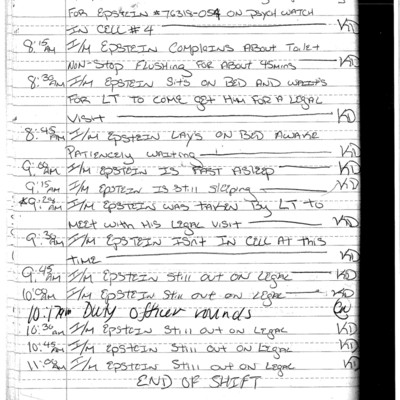 FOR EPSTEIN #76318-054 ON PSYCH WATCH
IN CELL #4 KD
8:15AM I/M EPSTEIN COMPLAINS ABOUT TOILET
NON-STOP FLUSHING FOR ABOUT 45MINS KD
8:30AM I/M EPSTEIN SITS ON BED AND WAITS
FOR LT TO COME GET HIM FOR A LEGAL
VISIT KD
8:45AM I/M EPSTEIN LAYS ON BED AWAKE
PATIENCELY WAITING KD
9:00AM I/M EPSTEIN IS FAST ASLEEP KD
9:15AM I/M EPSTEIN IS STILL SLEEPING KD
9:24AM I/M EPSTEIN WAS TAKEN BY LT TO
MEET WITH HIS LEGAL VISIT KD
9:30AM I/M EPSTEIN ISN'T IN CELL AT THIS
TIME KD
9:45AM I/M EPSTEIN STILL OUT ON LEGAL KD
10:00AM I/M EPSTEIN STILL OUT ON LEGAL KD
10:17AM Duty Officer rounds
10:30AM I/M EPSTEIN STILL OUT ON LEGAL KD
10:45AM I/M EPSTEIN STILL OUT ON LEGAL KD
11:00AM I/M EPSTEIN STILL OUT ON LEGAL KD
END OF SHIFT